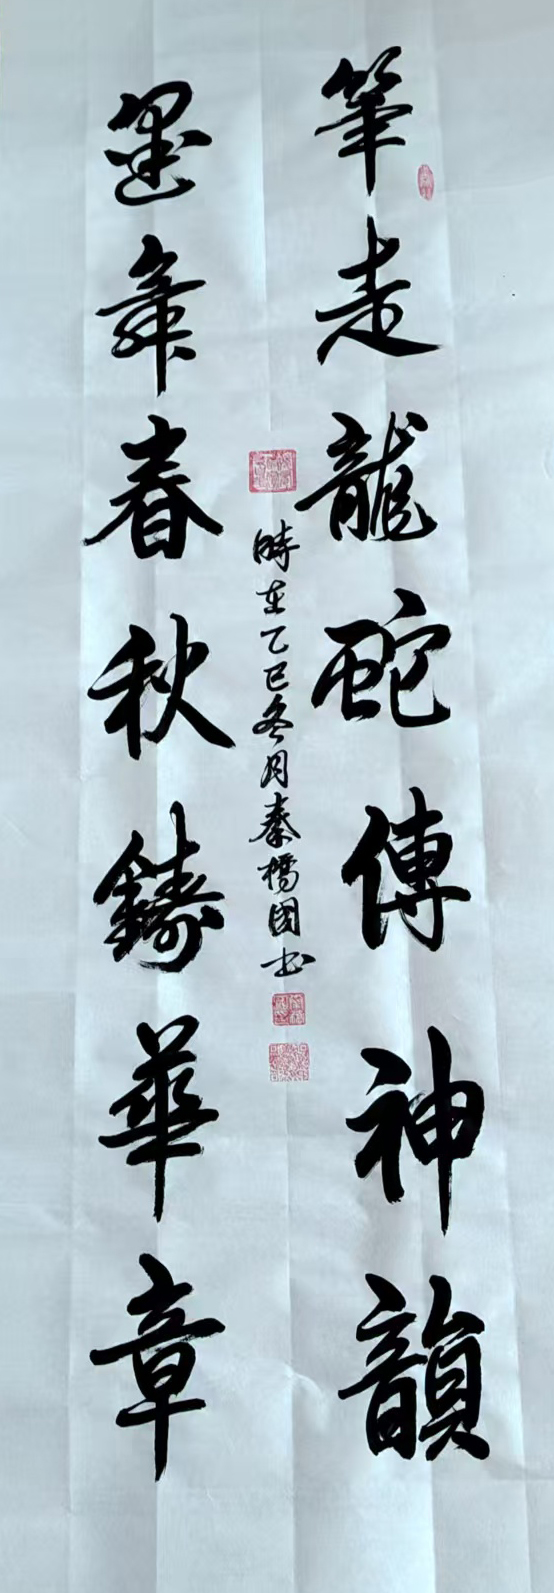 筆走龍蛇傳神韻
墨舞春秋鑄華章
時在乙巳冬月秦橋國书